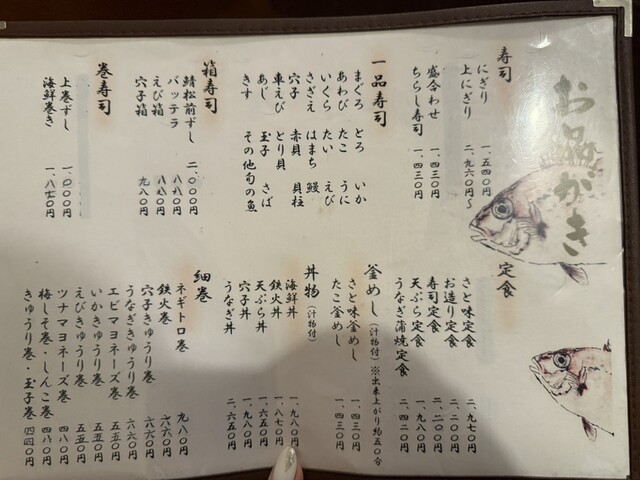 お品がき
寿司
にぎり 一、五四〇円
上にぎり 二、九六〇円〜
盛合わせ 一、四三〇円
ちらし寿司 一、四三〇円
一品寿司
まぐろ とろ いか
あわび たこ うに
いくら たい えび
さざえ はまち 鰻
穴子 赤貝 貝柱
車えび とり貝
あじ 玉子 さば
きす その他旬の魚
箱寿司
鯖松前ずし 二、〇〇〇円
バッテラ 八八〇円
えび箱 八八〇円
穴子箱 九八〇円
巻寿司
上巻ずし 一、〇〇〇円
海鮮巻き 一、八七〇円
定食
さと味定食 二、九七〇円
お造り定食 二、二〇〇円
寿司定食 二、二〇〇円
天ぷら定食 一、九八〇円
うなぎ蒲焼定食 二、四二〇円
釜めし（汁物付）※出来上がり約五〇分
さと味釜めし 一、四三〇円
たこ釜めし 一、四三〇円
丼物（汁物付）
海鮮丼 一、九八〇円
鉄火丼 一、八七〇円
天ぷら丼 一、六五〇円
穴子丼 一、九八〇円
うなぎ丼 二、六五〇円
細巻
ネギトロ巻 九八〇円
鉄火巻 六六〇円
穴子きゅうり巻 六六〇円
うなぎきゅうり巻 六六〇円
エビマヨネーズ巻 五五〇円
いかきゅうり巻 五五〇円
えびきゅうり巻 五五〇円
ツナマヨネーズ巻 四八〇円
梅しそ巻・しんこ巻 四八〇円
きゅうり巻・玉子巻 四四〇円